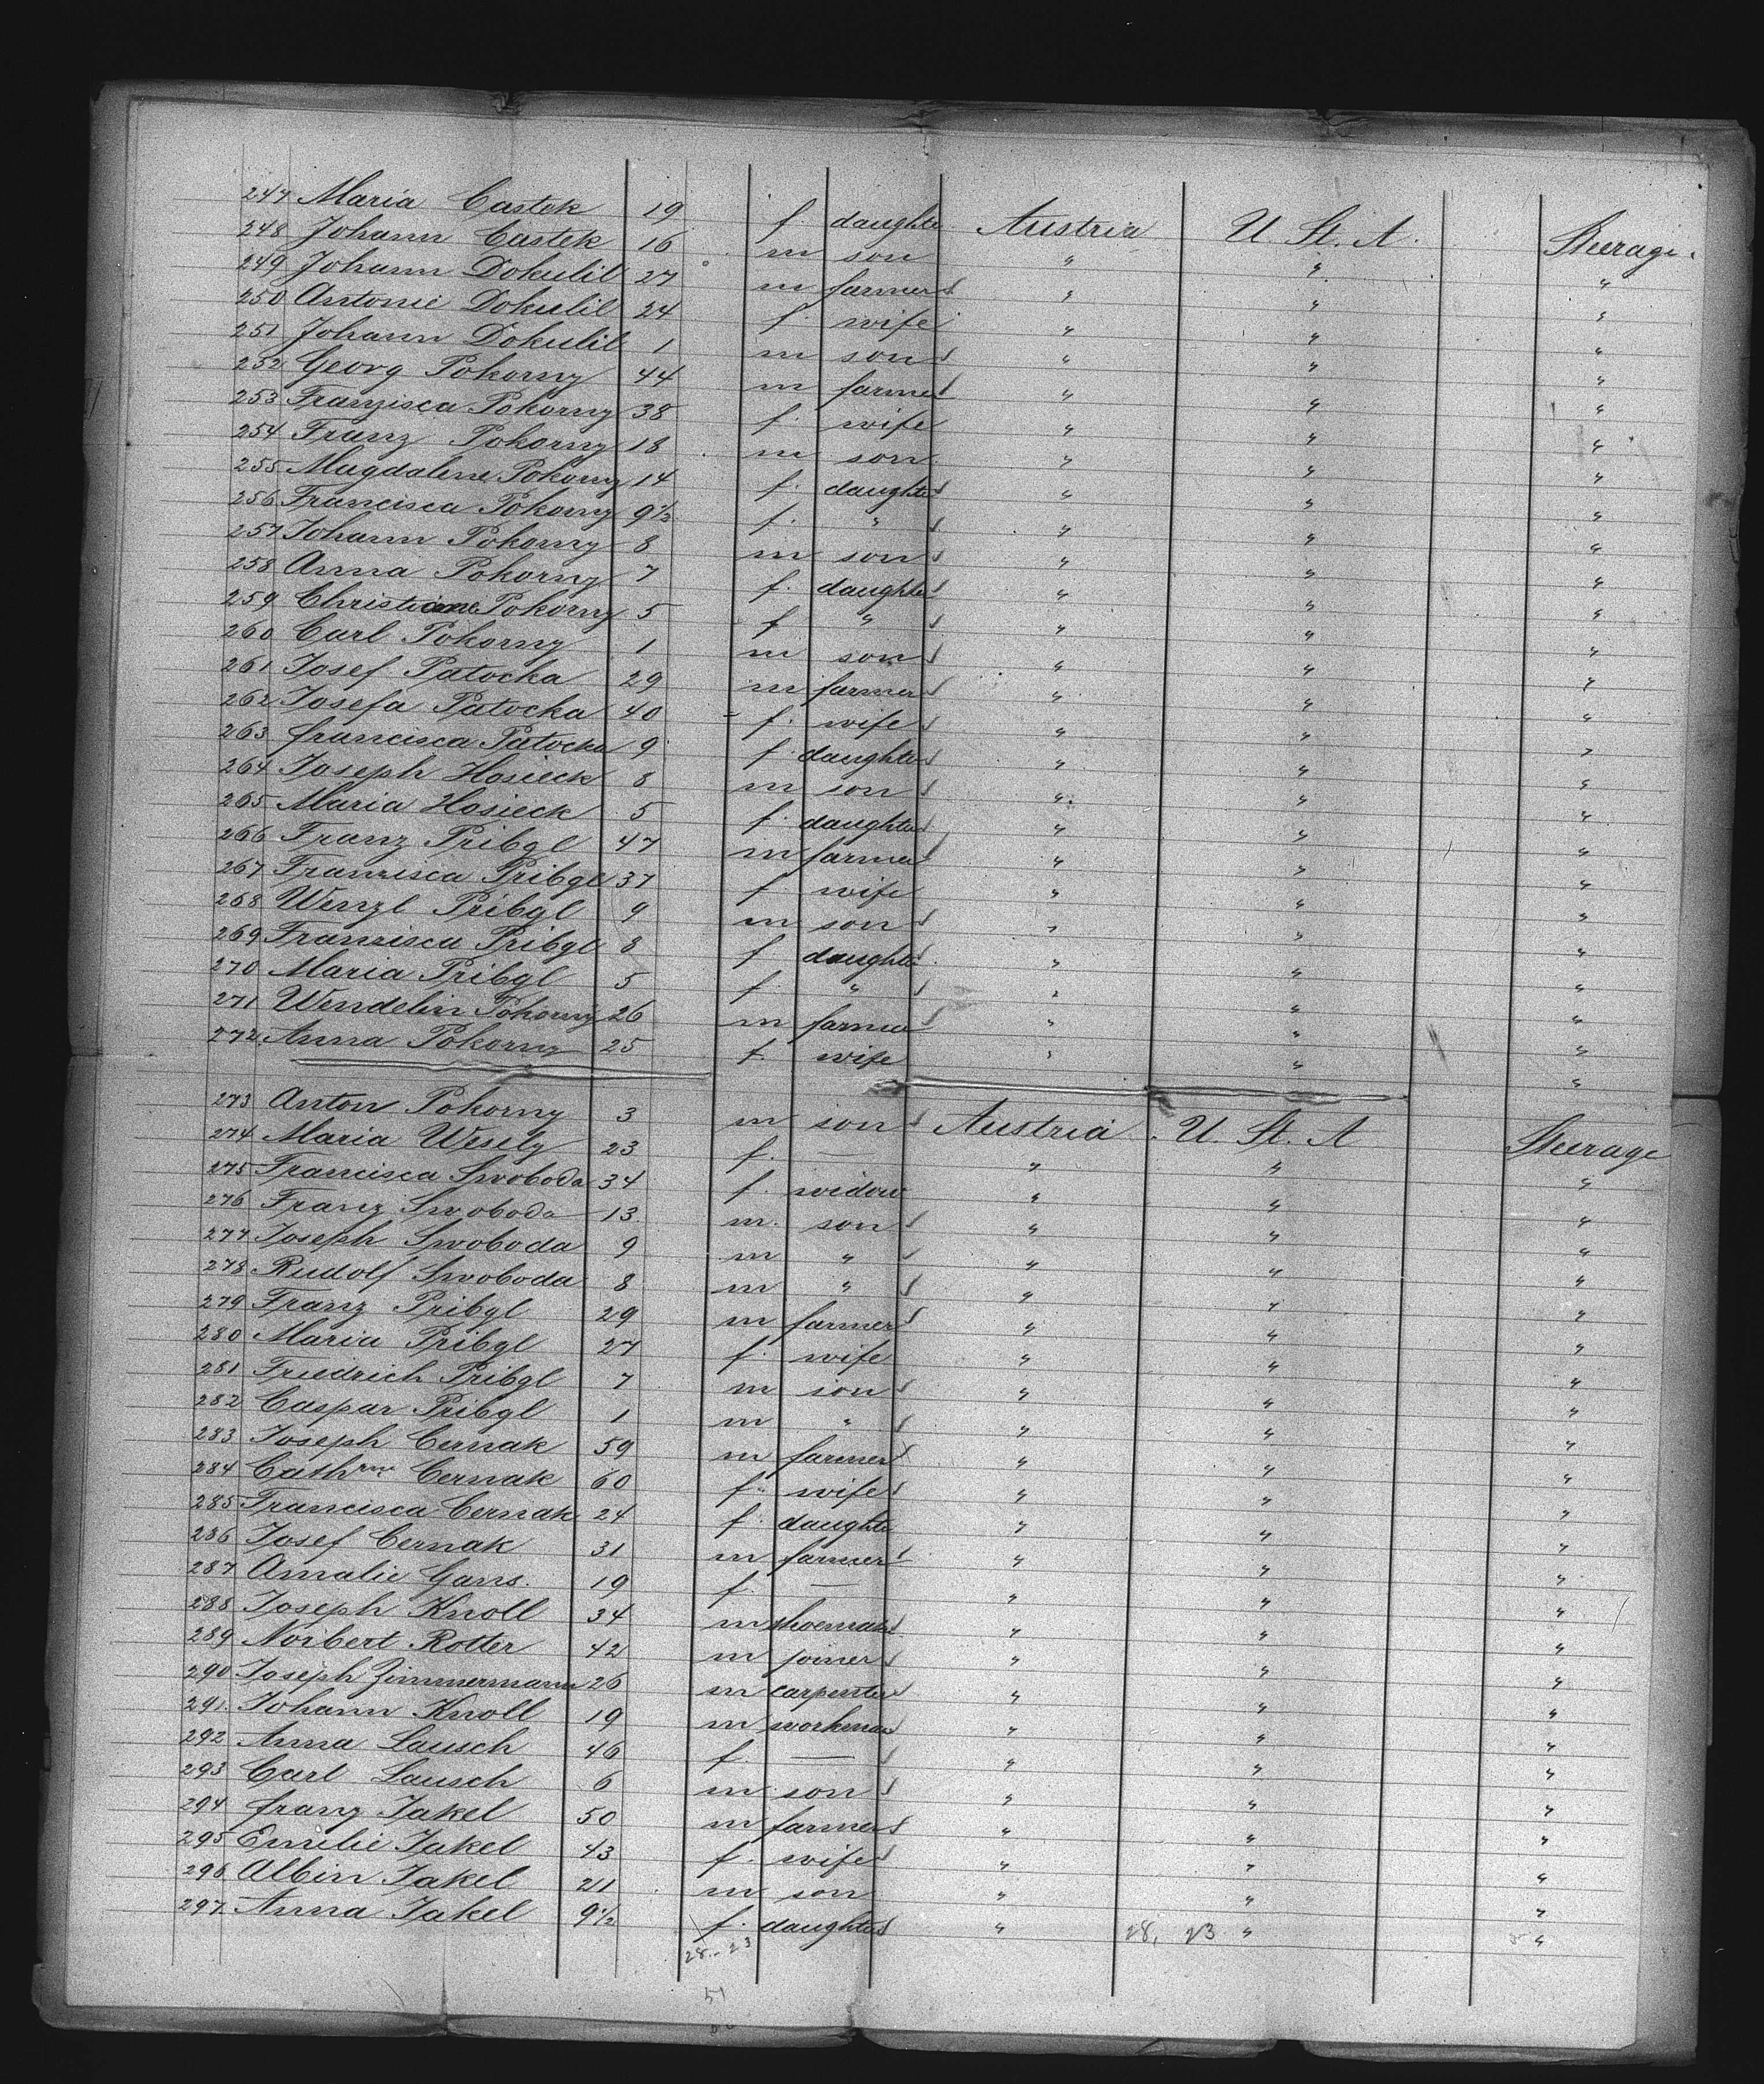 247 Maria Castek 19 f. daughter Austria U. St. A. Steerage.
248 Johann Castek 16 m son " " "
249 Johann Dokulil 27 m farmer " " "
250 Antonie Dokulil 24 f wife " " "
251 Johann Dokulil 1 m son " " "
252 Georg Pokorny 44 m farmer " " "
253 Franzisca Pokorny 38 f. wife " " "
254 Franz Pokorny 18 m son " " "
255 Magdalene Pokorny 14 f. daughter " " "
256 Francisca Pokorny 9 1/2 f. " " " "
257 Johann Pokorny 8 m son " " "
258 Anna Pokorny 7 f. daughter " " "
259 Christiane Pokorny 5 f " " " "
260 Carl Pokorny 1 m son " " "
261 Josef Patocka 29 m farmer " " "
262 Josefa Patocka 40 f. wife " " "
263 francisca Patocka 9 f daughter " " "
264 Joseph Hosieck 8 m son " " "
265 Maria Hosieck 5 f. daughter " " "
266 Franz Pribgl 47 m farmer " " "
267 Franzisca Pribgl 37 f. wife " " "
268 Wenzl Pribgl 9 m son " " "
269 Franzisca Pribgl 8 f daughter " " "
270 Maria Pribgl 5 f. " " " "
271 Wendelin Pokorny 26 m farmer " " "
272 Anna Pokorny 25 f. wife " " "
273 Anton Pokorny 3 m son Austria U. St. A Steerage
274 Maria Wesely 23 f. — " " "
275 Francisca Swoboda 34 f. widow " " "
276 Franz Swoboda 13 m. son " " "
277 Joseph Swoboda 9 m " " " "
278 Rudolf Swoboda 8 m " " " "
279 Franz Pribgl 29 m farmer " " "
280 Maria Pribgl 27 f. wife " " "
281 Friedrich Pribgl 7 m son " " "
282 Caspar Pribgl 1 m " " " "
283 Joseph Cernak 59 m farmer " " "
284 Cathrne Cernak 60 f. wife " " "
285 Francisca Cernak 24 f. daughter " " "
286 Josef Cernak 31 m farmer " " "
287 Amalie Gans. 19 f. — " " "
288 Joseph Knoll 34 m shoemak. " " "
289 Norbert Rotter 42 m joiner " " "
290 Joseph Zimmermann 26 m carpenter " " "
291. Johann Knoll 19 m workman " " "
292 Anna Lausch 46 f. — " " "
293 Carl Lausch 6 m son " " "
294 franz Jakel 50 m farmer " " "
295 Emilie Jakel 43 f. wife " " "
296 Albin Jakel 21 m son " " "
297 Anna Jakel 9 1/2 f. daughter " " "
28. 23 28, 23
51